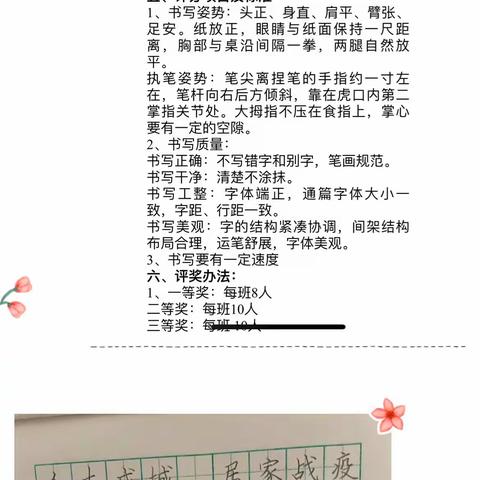 1、书写姿势：头正、身直、肩平、臂张、
足安。纸放正，眼睛与纸面保持一尺距
离，胸部与桌沿间隔一拳，两腿自然放
平。
执笔姿势：笔尖离捏笔的手指约一寸左
在，笔杆向右后方倾斜，靠在虎口内第二
掌指关节处。大拇指不压在食指上，掌心
要有一定的空隙。
2、书写质量：
书写正确：不写错字和别字，笔画规范。
书写干净：清楚不涂抹。
书写工整：字体端正，通篇字体大小一
致，字距、行距一致。
书写美观：字的结构紧凑协调，间架结构
布局合理，运笔舒展，字体美观。
3、书写要有一定速度
六、评奖办法：
1、一等奖：每班8人
二等奖：每班10人
三等奖：每班 10人
城 居家战疫